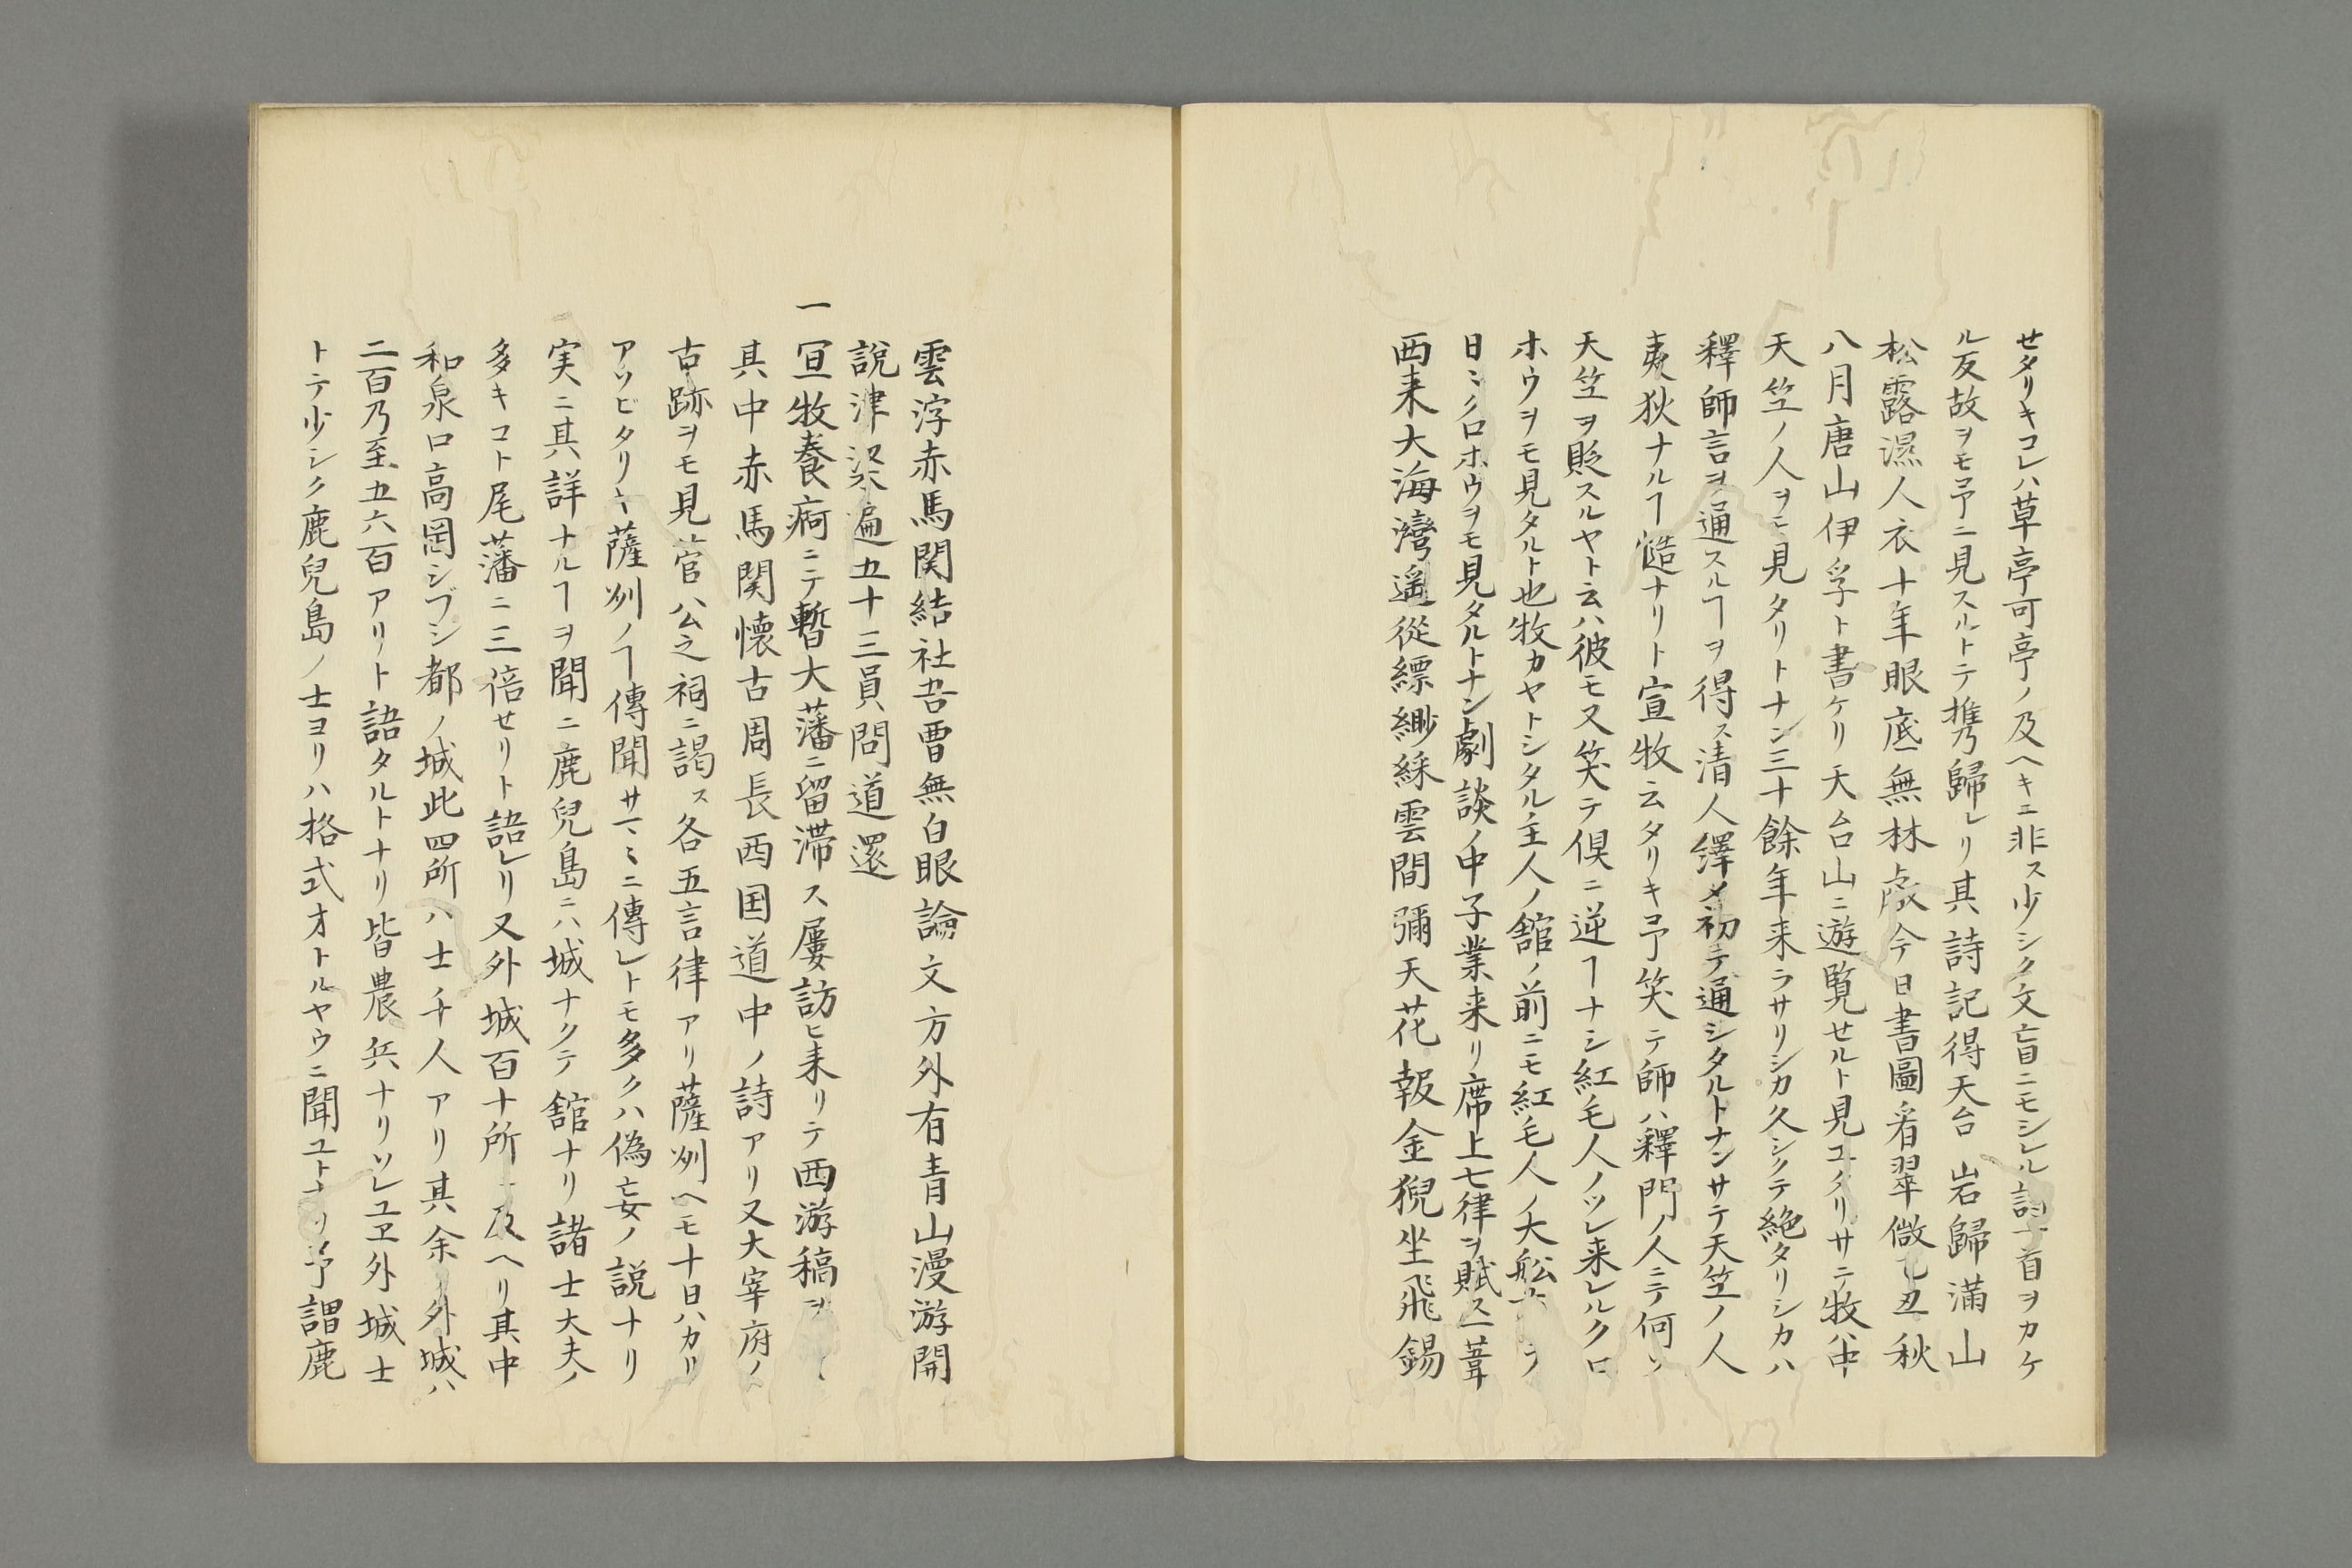 セタリキコレハ草亭可亭ノ及ヘキニ非ス少シク文盲ニモシレル詩一首ヲカケ
ル反故ヲモ予ニ見スルトテ携ヘ歸レリ其詩記得天台岩歸滿山
松露濕人衣十年眼底無林處今日書圖看翠微乙丑秋
八月唐山伊孚ト書ケリ天台山ニ遊覧セルト見ユクリサニテ牧中
天竺ノ人ヲモ見タリトナン三十餘年来ラサリシカ久シクテ絶タリシカハ
釋師言ヲ通スルヿヲ得ス清人繹メ初テ通シタルトナンサテ天竺ノ人
夷狄ナルヿ慥ナリト宣牧云タリキ予笑テ師ハ釋門ノ人ニテ何ソ
天竺ヲ貶スルヤト云ハ彼モ又笑テ俱ニ逆ヿナシ紅毛人ノツレ来レルクロ
ホウヲモ見タルト也牧カヤトシタル主人ノ舘ノ前ニモ紅毛人ノ大舩
日ミクロホウヲモ見タルトナン劇談ノ中子業来リ席上七律ヲ賦ス一葦
西来大海灣遥從縹緲綵雲間彌天花報金猊坐飛錫
雲浮赤馬関結社吾曹無白眼論文方外有青山漫游開
說津梁遍五十三員問道還
一宣牧養痾ニテ暫大藩ニ留滞ス屢訪ヒ来リテ西游稿ヲ
其中赤馬関懐古周長西国道中ノ詩アリ又大宰府ノ
古跡ヲモ見菅公之祠ニ謁ス各五言律アリ薩州ヘモ十日ハカリ
アソビタリキ薩州ノヿ傳聞サマミニ傳レトモ多クハ偽妄ノ説ナリ
実ニ其詳ナルヿヲ聞ニ鹿兒島ニハ城ナクテ舘ナリ諸士大夫ノ
多キコト尾藩ニ三倍セリト語レリ又外城百十所ニ及ヘリ其中
和泉口高岡シブシ都ノ城此四所ハ士千人アリ其余ノ外城ハ
二百乃至五六百アリト語タルトナリ皆農兵ナリソレユヱ外城士
トテ少シク鹿兒島ノ士ヨリハ格式オトルヤウニ聞ユトナリ予謂鹿